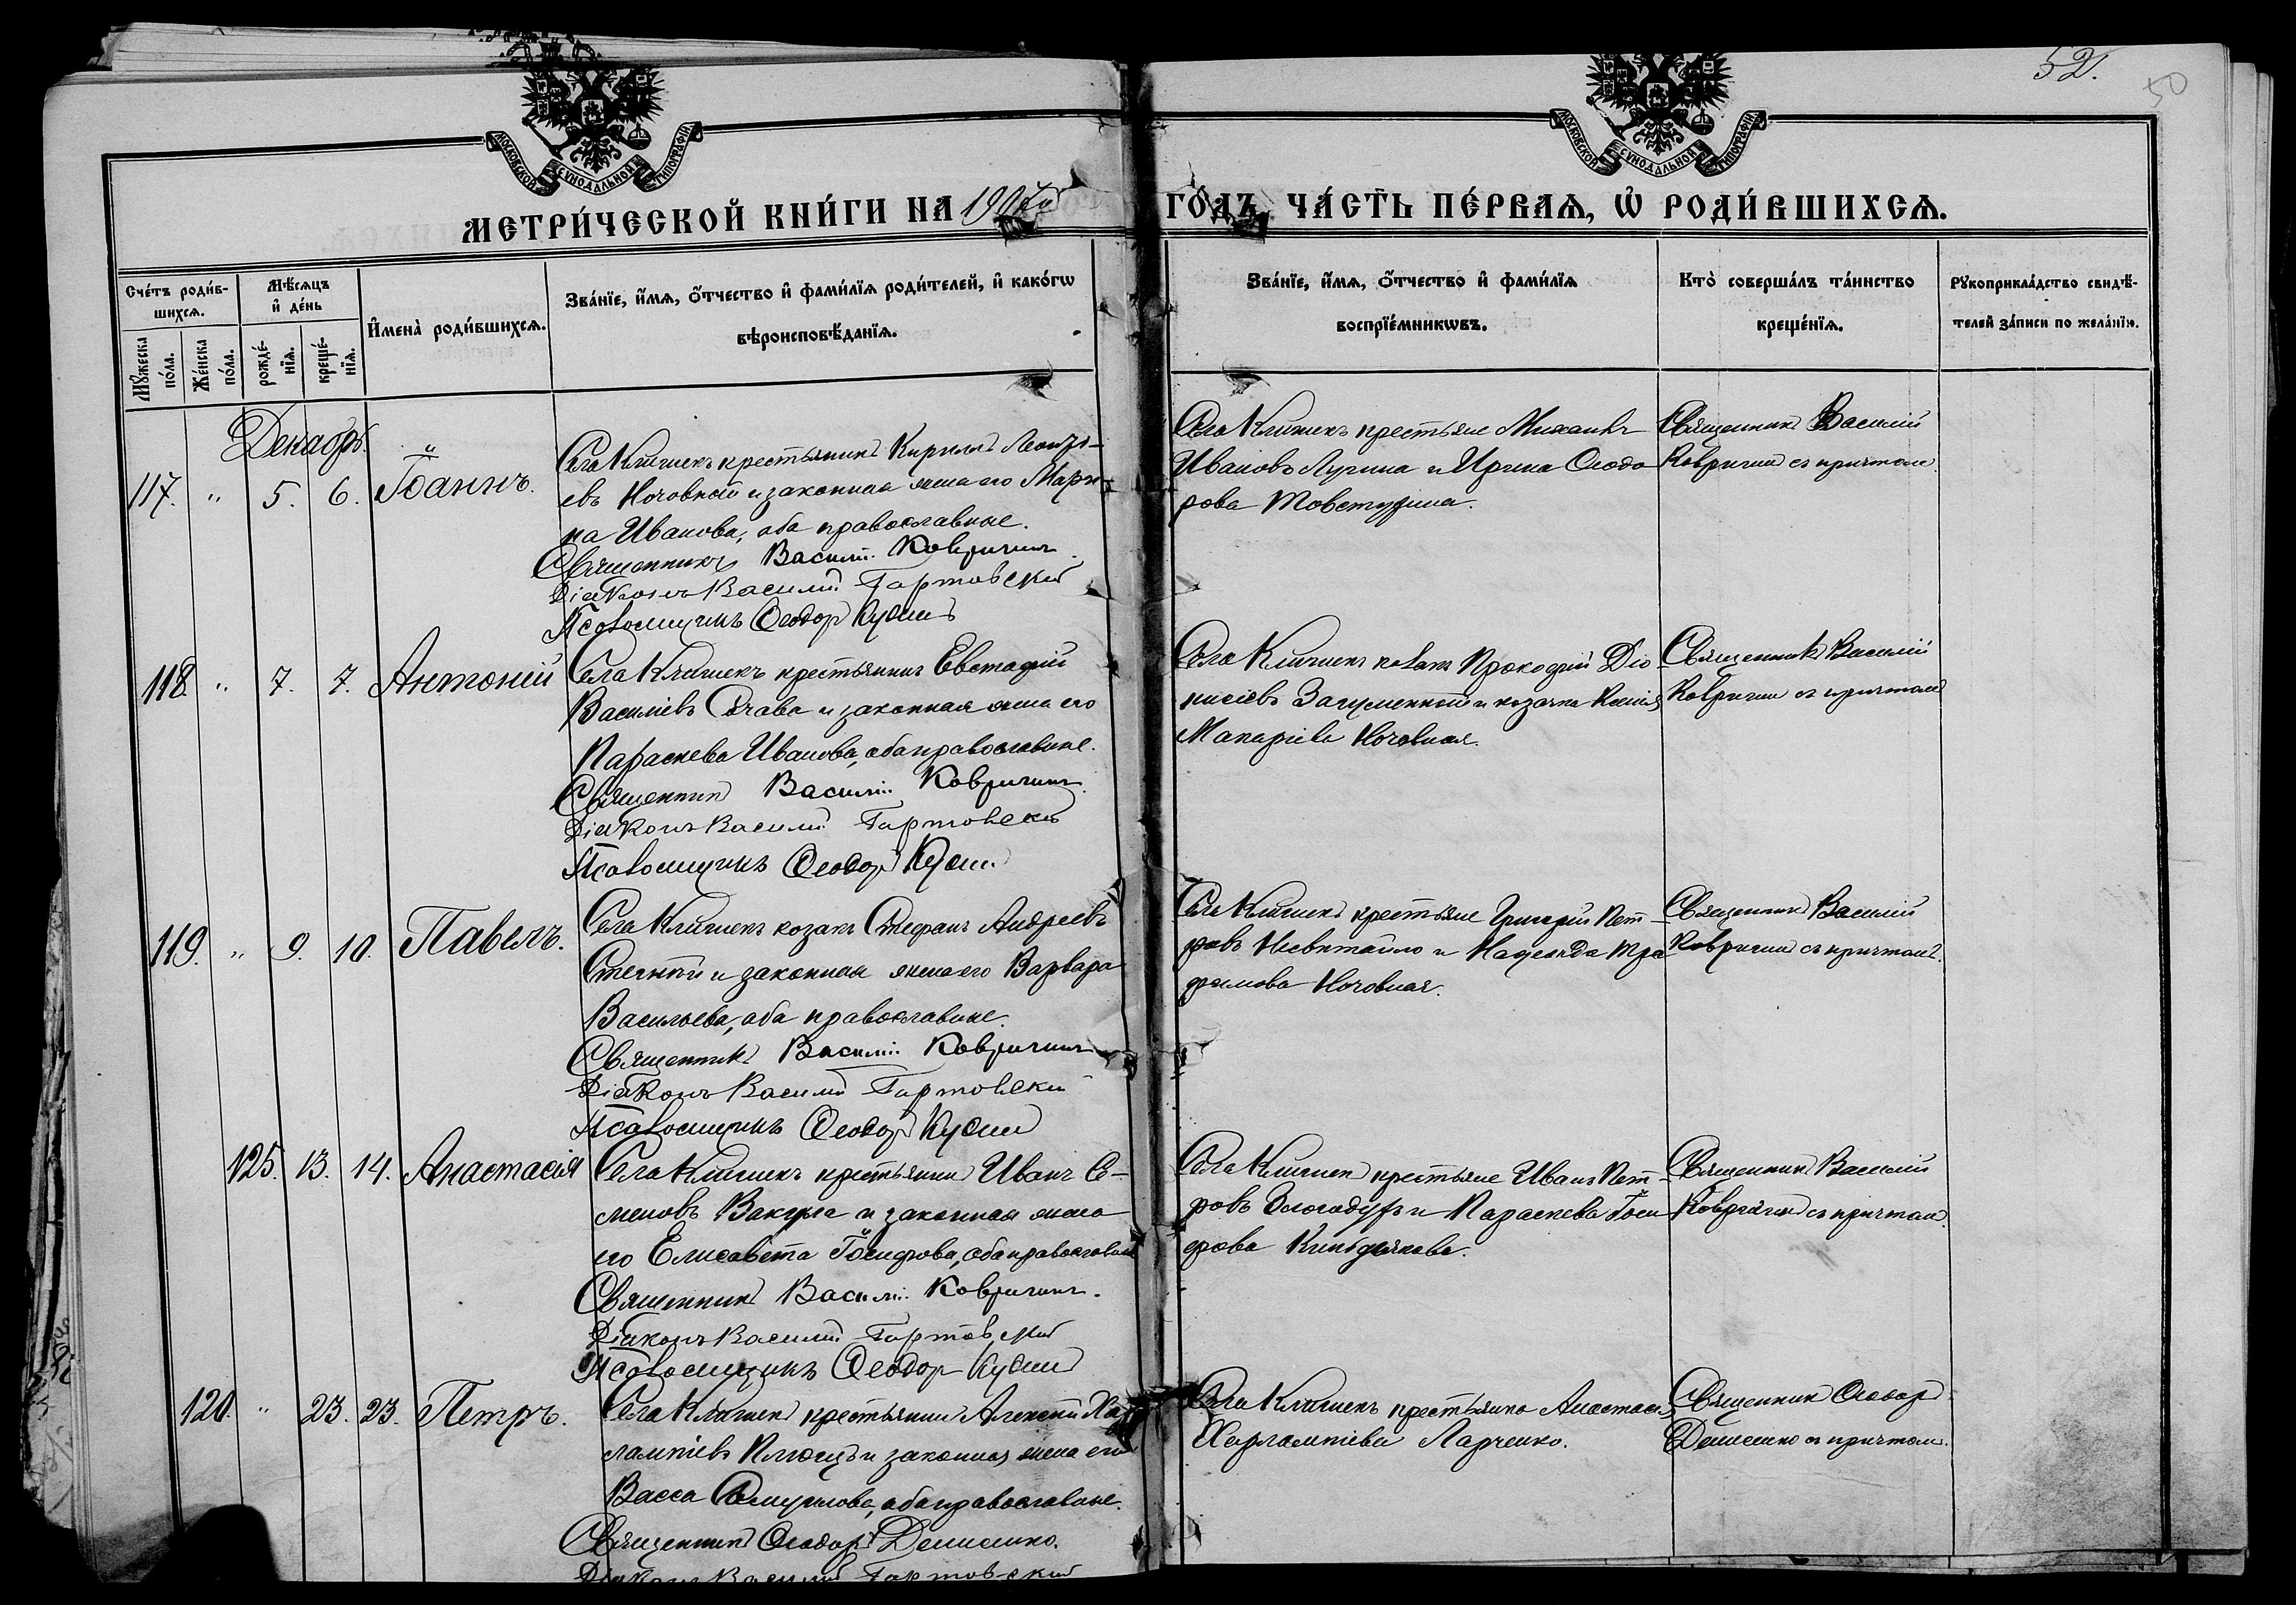 52.
50
МОСКОВСКОЙ СУНОДАЛЬНОЙ ТИПОГРАФІИ
МОСКОВСКОЙ СУНОДАЛЬНОЙ ТИПОГРАФІИ
МЕТРИ́ЧЕСКОЙ КНИ́ГИ НА 1907й
ГО́ДЪ, ЧА́СТЬ ПЕ́РВАЯ, Ѡ҆ РОДИ́ВШИХСЯ.
Сче́тъ роди́в-
шихся.
Му́жеска по́ла.
Же́нска по́ла.
Мѣ́сяцъ
и҆ де́нь
рожде́-
нїя.
креще́-
нїя.
И҆мена̀ роди́вшихся.
Зва́нїе, и҆́мя, ѻ҆́тчество и҆ фами́лїя роди́телей, и҆ како́гѡ
вѣроисповѣ́данїя.
Зва́нїе, и҆́мя, ѻ҆́тчество и҆ фами́лїя
воспрїе́мникѡвъ.
Кто̀ соверша́лъ та́инство
креще́нїя.
Рукоприкла́дство свидѣ́-
телей за́писи по жела́нїю.
Декабрь.
117. " 5. 6. Іоаннъ.
Села Клишекъ крестьянинъ Кирилъ Леонтї-
евъ Ночовный и законная жена его Мари-
на Иванова, оба православные.
Священникъ Василій Ковригинъ.
Діаконъ Василій Гартовскій
Псаломщикъ Ѳеодоръ
Села Клишекъ крестьяне Михаилъ
Ивановъ Лугина и Ирина Ѳеодо-
рова Товстуха.
Священникъ Василій
Ковригинъ съ причтомъ.
118. " 7. 7. Антоній
Села Клишекъ крестьянинъ Евстафій
Василіевъ и законная жена его
Параскева Иванова, оба православные.
Священникъ Василій Ковригинъ.
Діаконъ Василій Гартовскій
Псаломщикъ Ѳеодоръ
Села Клишекъ козакъ Прокофій Діо-
нисіевъ Загуменный и козачка Ксенія
Макаріева Ночовная.
Священникъ Василій
Ковригинъ съ причтомъ
119. " 9. 10. Павелъ.
Села Клишекъ козакъ Стефанъ Андреевъ
и законная жена его Варвара
Васильева, оба православные.
Священникъ Василій Ковригинъ
Діаконъ Василій Гартовскій
Псаломщикъ Ѳеодоръ
Села Клишекъ крестьяне Григорій Пет-
ровъ и Надежда Тро-
фимова Ночовная.
Священникъ Василій
Ковригинъ съ причтомъ.
125. 13. 14. Анастасія
Села Клишекъ крестьянинъ Иванъ Се-
меновъ Вакула и законная жена
его Елисавета Іосифова, оба православные
Священникъ Василій Ковригинъ.
Діаконъ Василій Гартовскій
Псаломщикъ Ѳеодоръ
Села Клишекъ крестьяне Иванъ Пет-
ровъ и Параскева Іоси-
фова
Священникъ Василій
Ковригинъ съ причтомъ.
120. " 23. 23. Петръ.
Села Клишекъ крестьянинъ Алексѣй Хар-
лампіевъ и законная жена его
Васса Самуилова, оба православные.
Священникъ Ѳеодоръ Денисенко.
Діаконъ Василій Гартовскій
Села Клишекъ крестьянка Анастасія
Харлампіева Ларченко.
Священникъ Ѳеодоръ
Денисенко съ причтомъ.